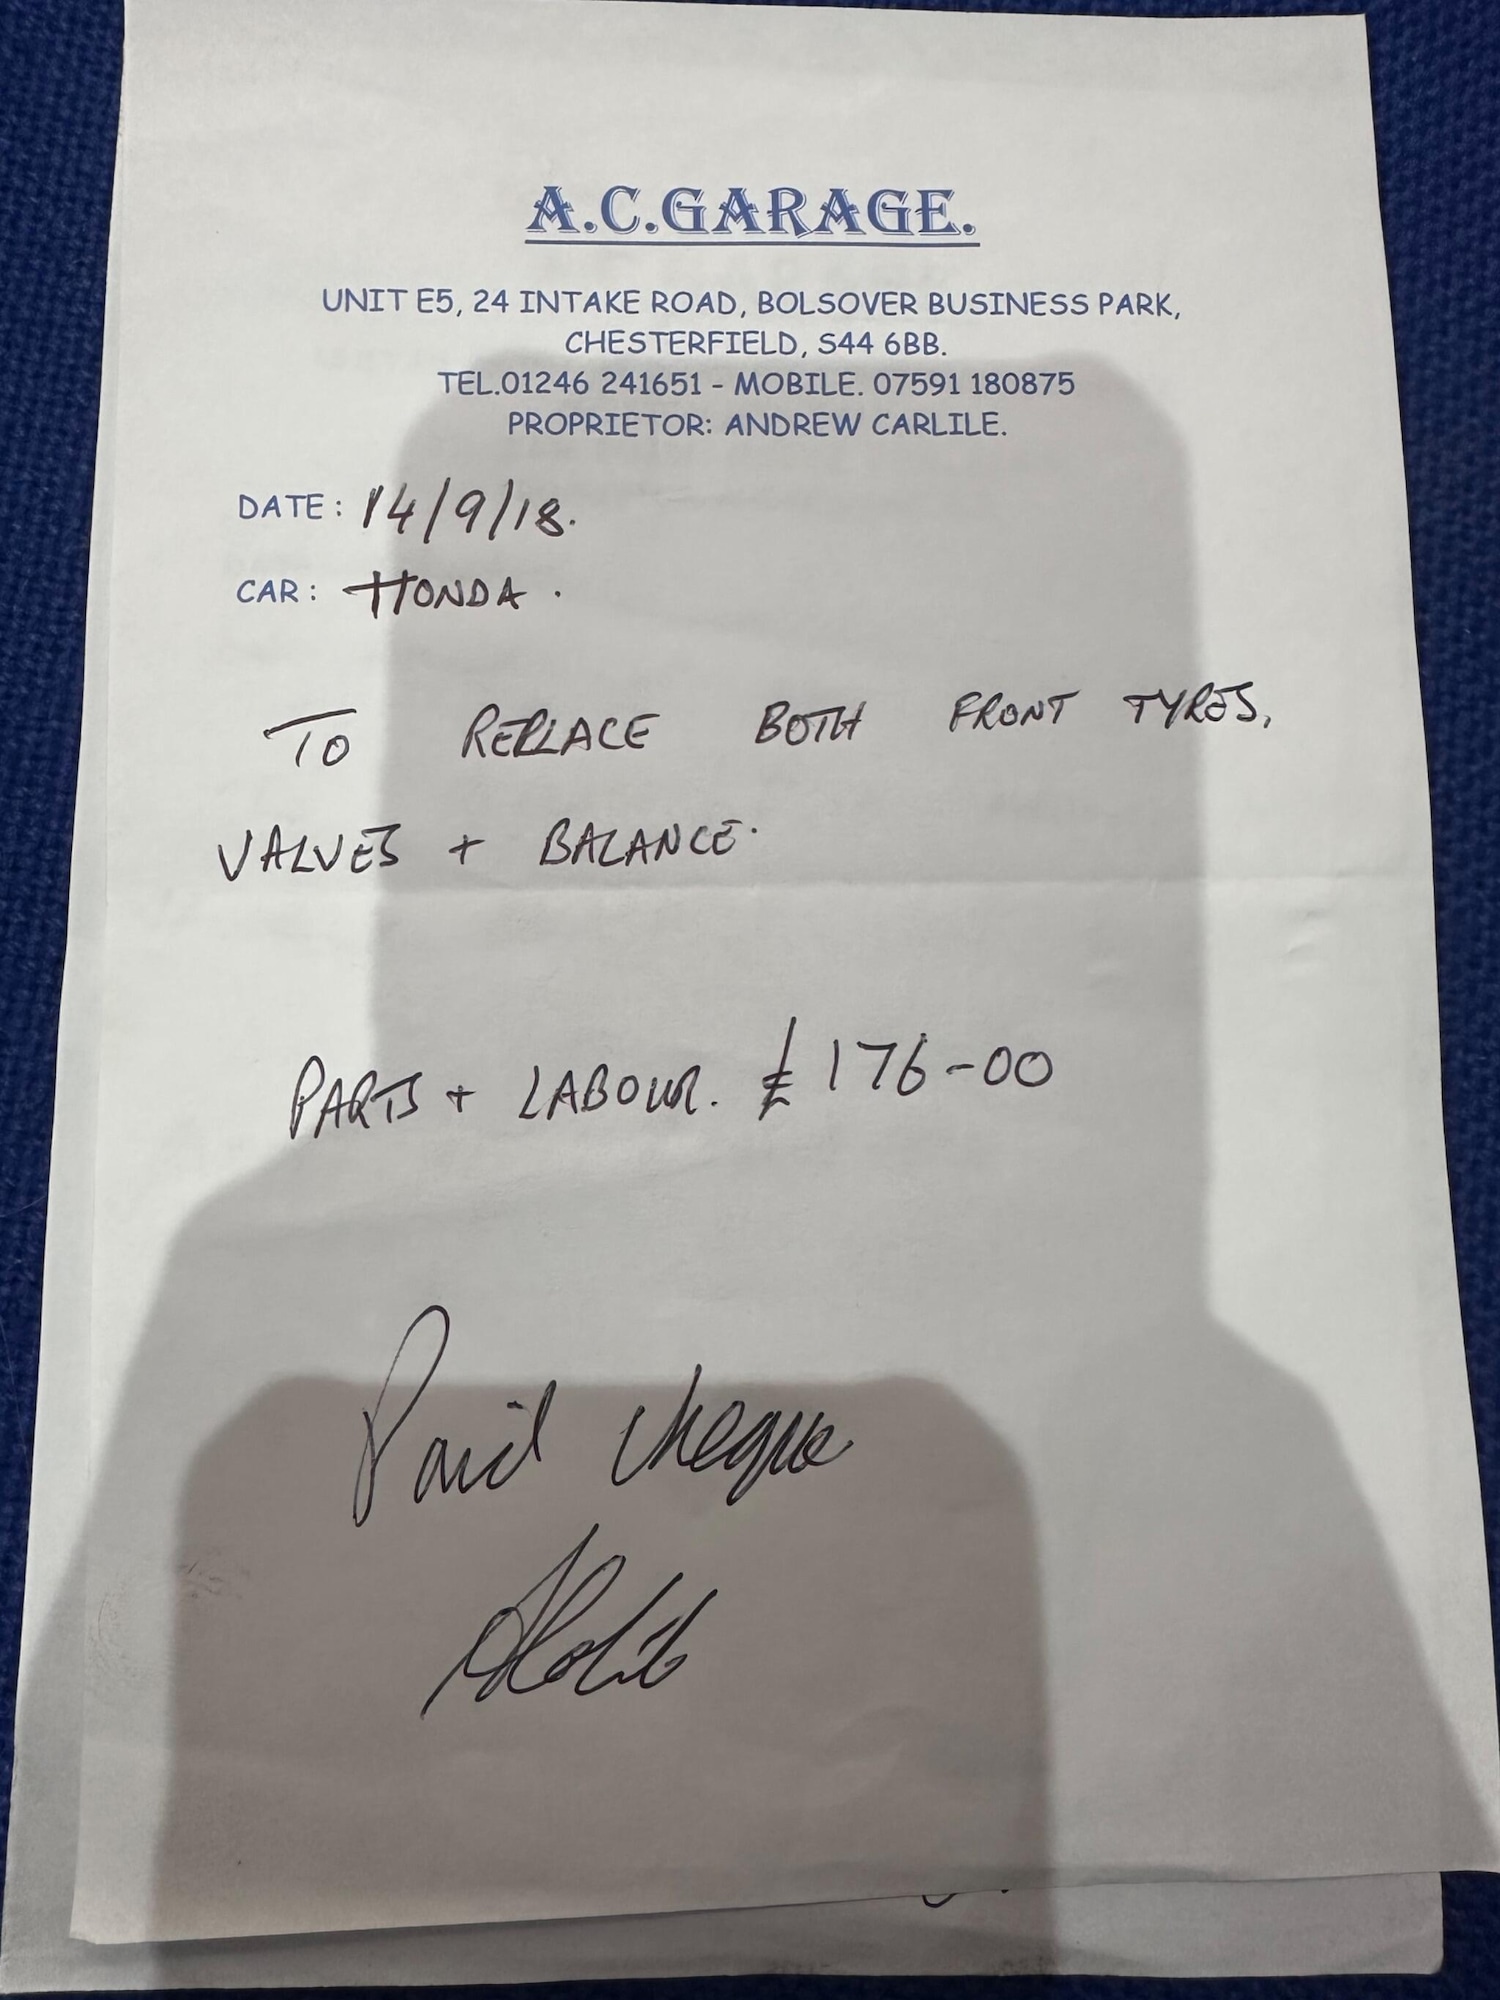 A.C.GARAGE.
UNIT E5, 24 INTAKE ROAD, BOLSOVER BUSINESS PARK,
CHESTERFIELD, S44 6BB.
TEL.01246 241651 - MOBILE. 07591 180875
PROPRIETOR: ANDREW CARLILE.
DATE: 14/9/18.
CAR: HONDA.
TO REPLACE BOTH FRONT TYRES,
VALVES + BALANCE.
PARTS + LABOUR. £176-00
Paid cheque